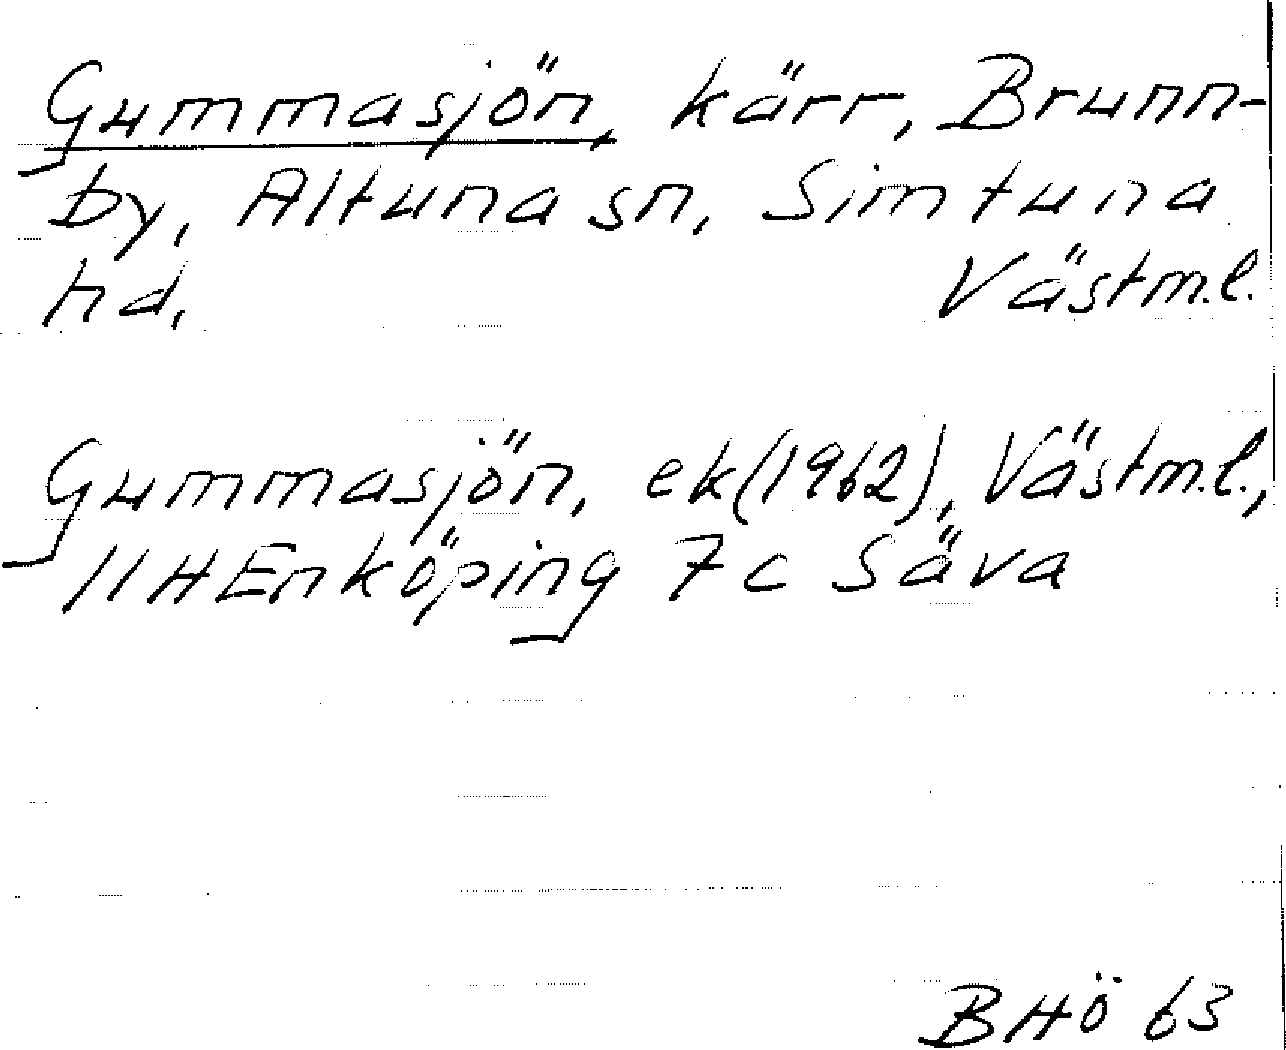 Gummasjön, kärr, Brunn-
by, Altuna sn, Simtuna
hd, Västm.l.
Gummasjön, ek(1962), Västm.l.,
11H Enköping 7c Säva
BHÖ 63